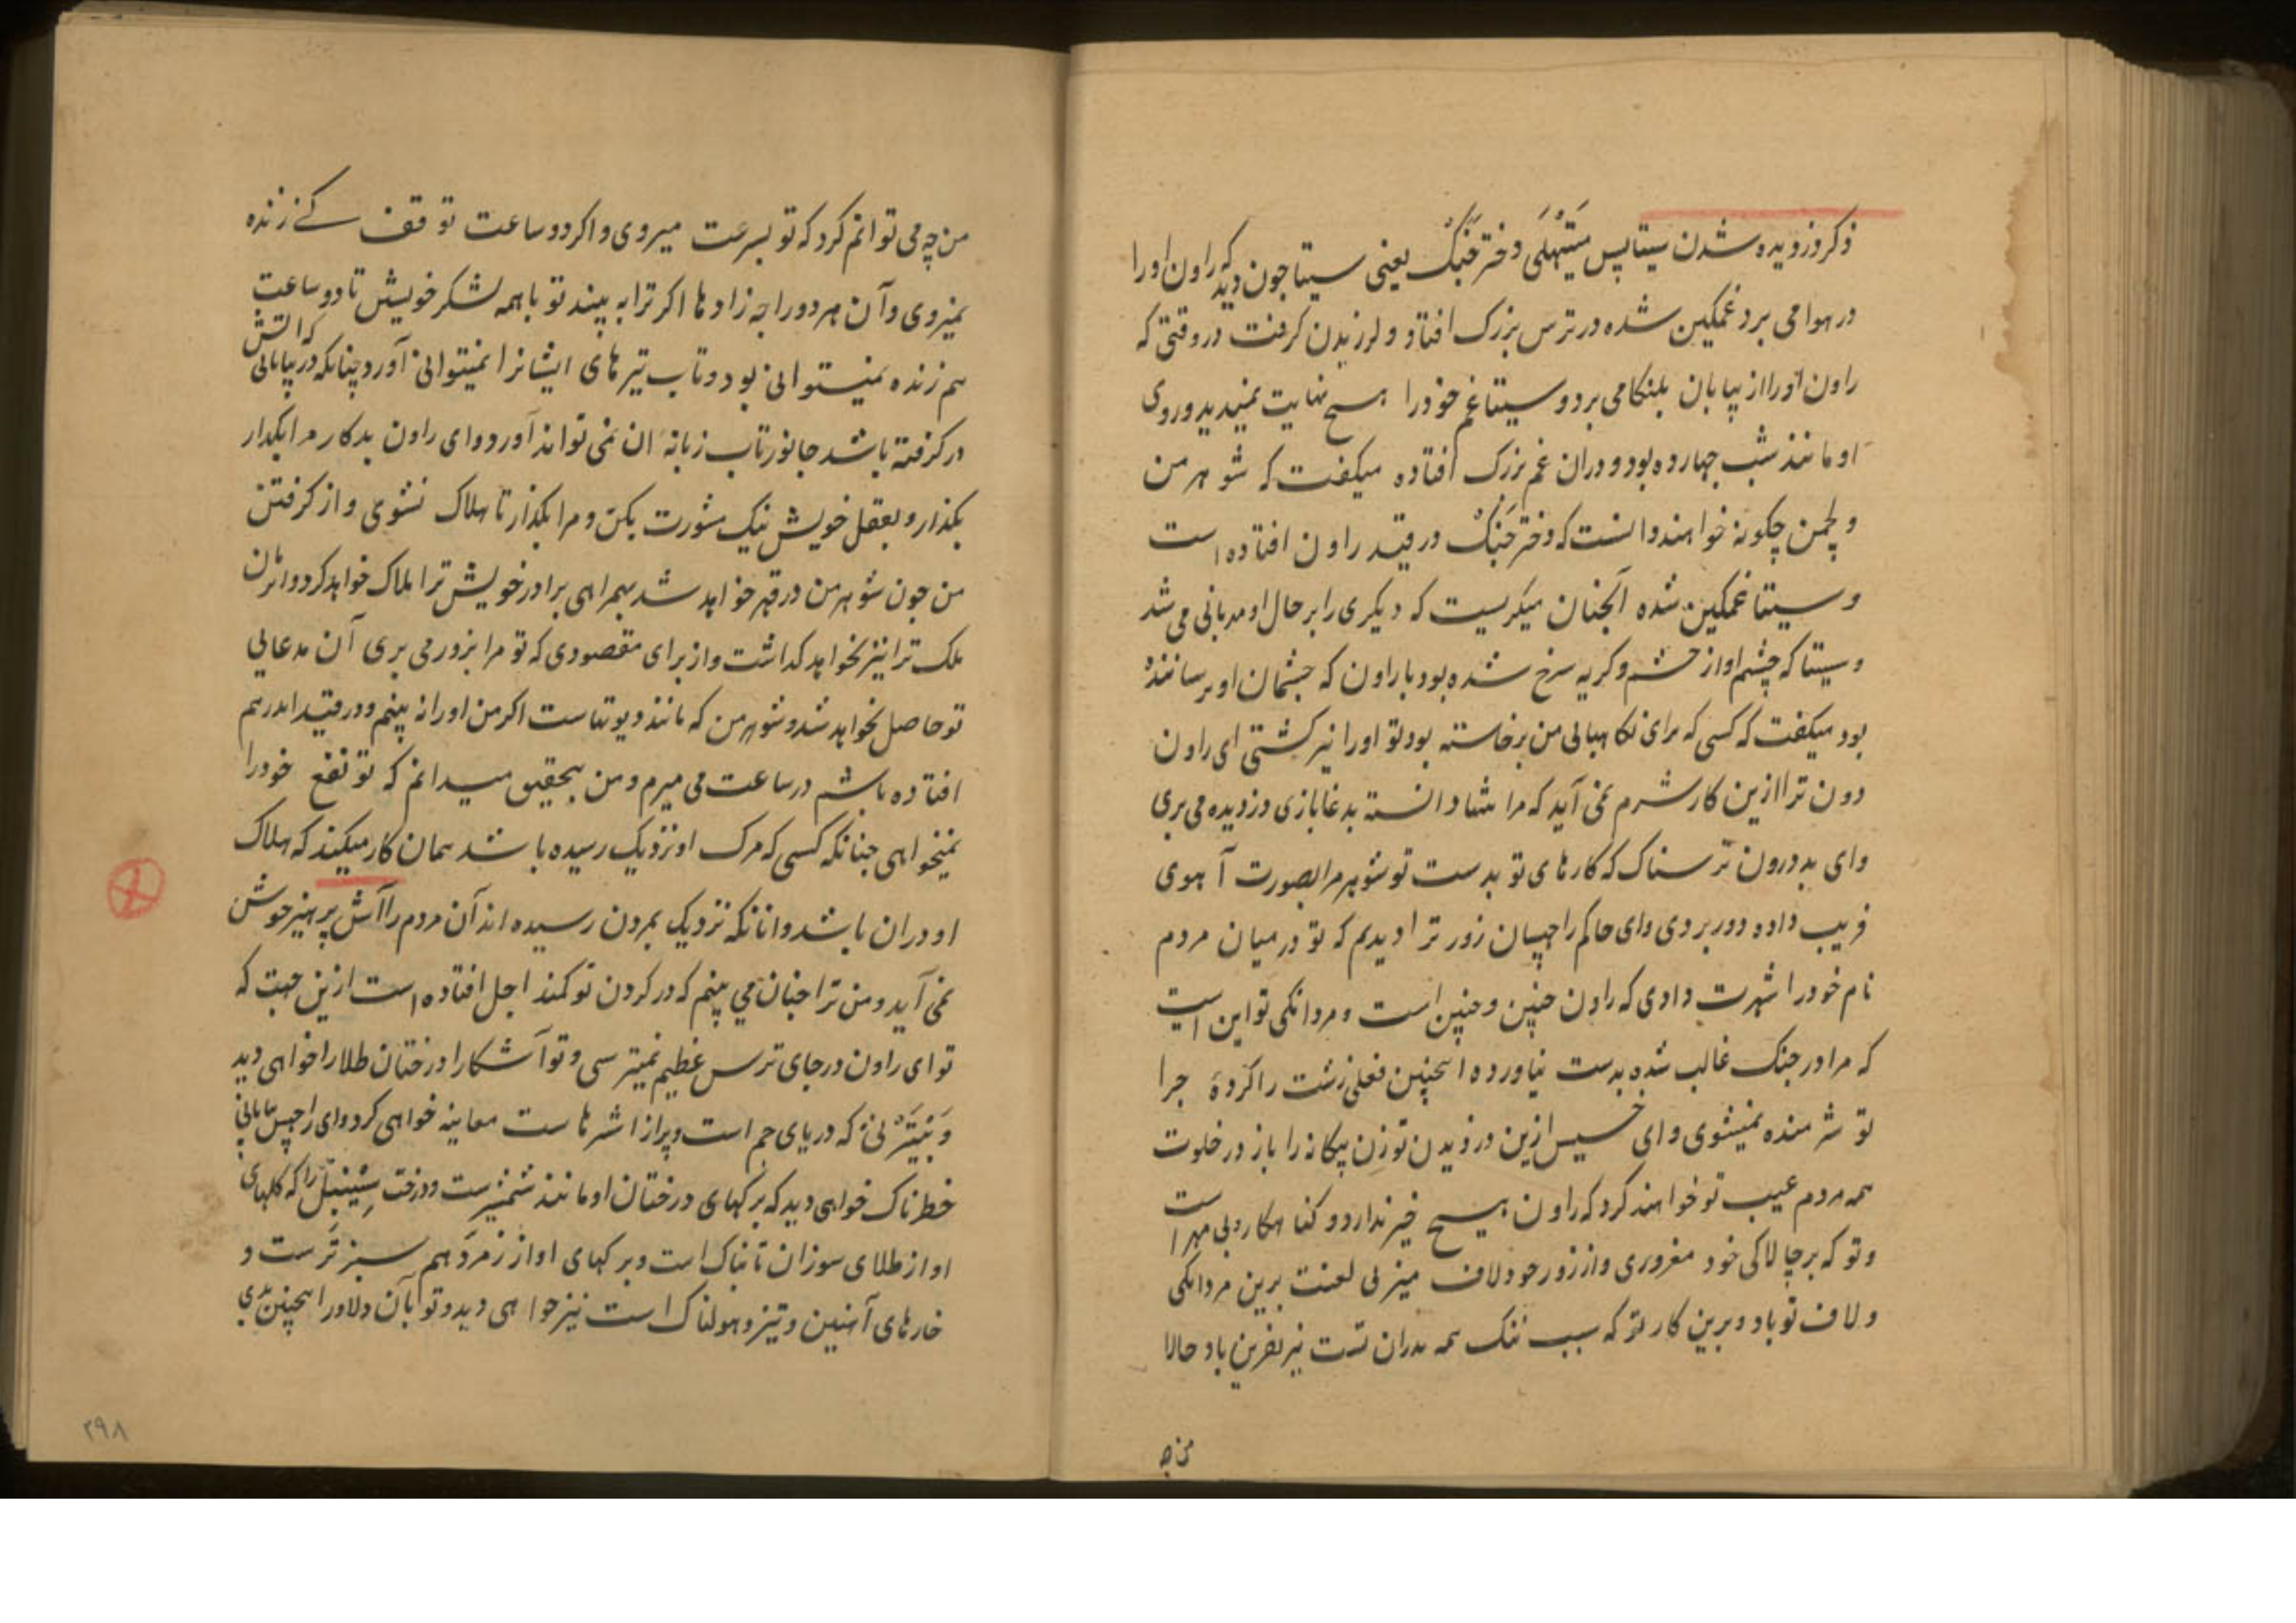 ذکر دزدیده شدن سیتا پس مَیتَهِلی دختر جَنَک یعنی سیتا چون دید که راون او را
در هوا می برد غمکین شده در ترس بزرک افتاد و لرزیدن کرفت در وقتی که
راون او را از بیابان بلنکا می برد و سیتا غم خود را هیچ نهایت نمیدید و روی
او مانند شب چهارده بود و دران غم بزرک افتاده میکفت که شوهر من
و لچمن چکونه خواهند دانست که دختر جَنَک در قید راون افتاده است
و سیتا غمکین شده آنچنان میکریست که دیکری را بر حال او مهربانی می شد
و سیتا که چشم او از خشم و کریه سرخ شده بود با راون که چشمان او ترسانندهٔ
بود میکفت که کسی که برای نکاهبانی من برخاسته بود تو او را نیز کشتی ای راون
دون ترا ازین کار شرم نمی آید که مرا تنها دانسته بدغابازی دزدیده می بری
و ای بد درون ترسناک که کارهای تو بدست تو شوهر مرا بصورت آهوی
فریب داده دور بردی و ای حاکم راچهسان زور ترا دیدیم که تو در میان مردم
نام خود را شهرت دادی که راون چنین و چنین است و مردانکی تو این است
که مرا در جنک غالب شده بدست نیاورده اینچنین فعلی زشت را کردهٔ چرا
تو شرمنده نمیشوی و ای خسیس ازین دزدیدن تو زن بیکانه را باز در خلوت
همه مردم عیب تو خواهند کرد که راون هیچ خیر ندارد و کناهکار و بی مهر است
و تو که بر چالاکی خود مغروری و از زور خود لاف میزنی لعنت برین مردانکی
و لاف تو باد و برین کار تو که سبب ننک همه پدران تست نیز نفرین باد حالا
من چه
من چه می توانم کرد که تو بسرعت میروی و اکر دو ساعت توقف کنے زنده
نمیروی و آن هر دو راجه زادها اکر ترا به بینند تو با همه لشکر خویش تا دو ساعت
هم زنده نمیتوانی بود و تاب تیرهای ایشانرا نمیتوانی آورد چنانکه در بیابانی که آتش
درکرفته باشد جانور تاب زبانهٔ آن نمی تواند آورد و ای راون بدکار مرا بکذار
بکذار و بعقل خویش نیک مشورت بکن و مرا بکذار تا هلاک نشوی و از کرفتن
من چون شوهر من در قهر خواهد شد بهمراهی برادر خویش ترا هلاک خواهد کرد و اثر آن
ملک ترا نیز نخواهد کذاشت و از برای مقصودی که تو مرا بزور می بری آن مدعای
تو حاصل نخواهد شد و شوهر من که مانند دیوتهاست اکر من او را نه بینم و در قید
افتاده باشم در ساعت می میرم و من بتحقیق میدانم که تو نفع خود را
نمیخواهی چنانکه کسی که مرک او نزدیک رسیده باشد همان کار میکند که هلاک
او دران باشد و آنانکه نزدیک بمردن رسیده اند آن مردم را آش پرهیز خوش
نمی آید و من ترا چنان می بینم که در کردن تو کمند اجل افتاده است ازین جهت که
تو ای راون در جای ترس عظیم نمیترسی و تو آشکارا درختان طلا را خواهی دید
و بَیتَرنی که دریای جم است و پر از اشرهاست معاینه خواهی کرد و ای راچهس
خطرناک خواهی دید که برکهای درختان او مانند شمشیرست و درخت سِینبَل را که کلهای
او از طلای سوزان تابناک است و برکهای او از زمرّد هم سبزترست و
خارهای آهنین و تیز و هولناک است نیز خواهی دید و تو بآن دلاور اینچنین بدی
۲۹۸